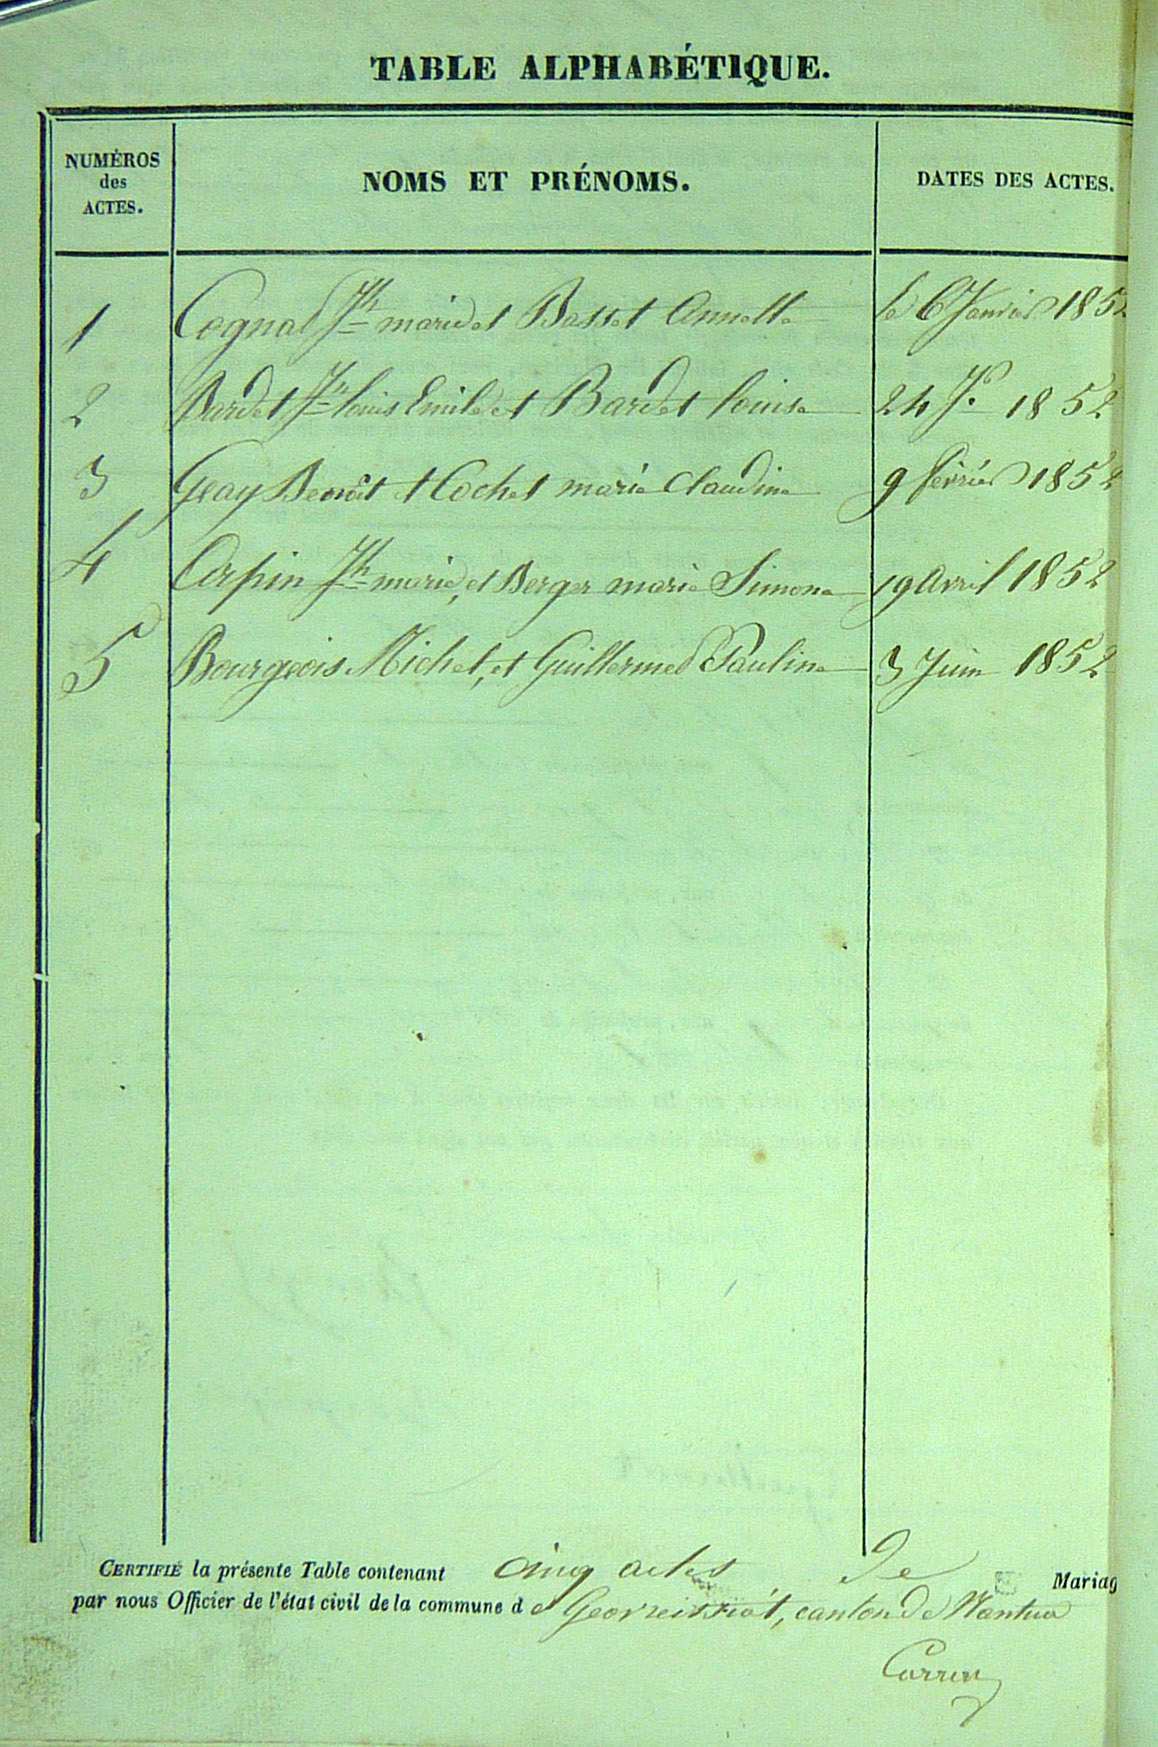 TABLE ALPHABÉTIQUE.
NUMÉROS des ACTES. NOMS ET PRÉNOMS. DATES DES ACTES.
1 Cognat Jh marie et Basset Annette le 6 Janvier 1852
2 Bardet Jn louis Emile et Bardet louise 24 Jr 1852
3 Geay Benoît et Cochet marie Claudine 9 février 1852
4 Carpin Jh marie, et Berger marie Simone 19 avril 1852
5 Bourgeois Michel, et Guillermet Pauline 3 Juin 1852
CERTIFIÉ la présente Table contenant cinq actes de Mariag
par nous Officier de l'état civil de la commune de Geovreissiat, canton de Nantua